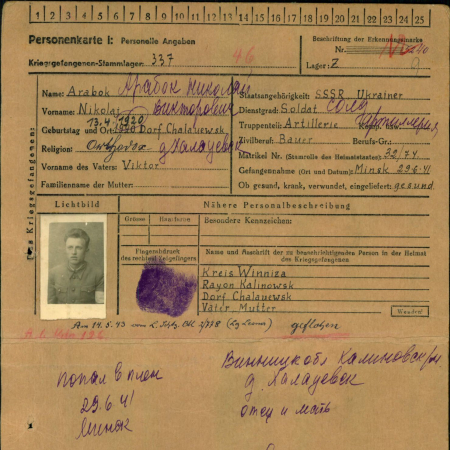 1 2 3 4 5 6 7 8 9 10 11 12 13 14 15 16 17 18 19 20 21 22 23 24 25
Personenkarte I: Personelle Angaben
Kriegsgefangenen-Stammlager: 337
46
Beschriftung der Erkennungsmarke
Nr.
Lager: Z
des Kriegsgefangenen:
Name: Arabok Арабок Николай
Vorname: Nikolai Викторович
13.4.1920
Geburtstag und Ort: Dorf Chalauewsk
Religion: д Халадевка
Vorname des Vaters: Viktor
Familienname der Mutter:
Staatsangehörigkeit: SSSR Ukrainer
Dienstgrad: Soldat солд
Truppenteil: Artillerie
Zivilberuf: Bauer Berufs-Gr.:
Matrikel Nr. (Stammrolle des Heimatstaates): 32/74
Gefangennahme (Ort und Datum): Minsk 29.6.41
Ob gesund, krank, verwundet, eingeliefert: gesund
Lichtbild
Nähere Personalbeschreibung
Grösse
Haarfarbe
Besondere Kennzeichen:
Fingerabdruck
des rechten Zeigefingers
Name und Anschrift der zu benachrichtigenden Person in der Heimat
des Kriegsgefangenen
Kreis Winniza
Rayon Kalinowsk
Dorf Chalauewsk
Vater Mutter
Wenden!
Am 14.5.43 geflohen
попал в плен
29.6 41
Минск
Винницкобл Калиновск рн
д. Халадевск
отец и мать